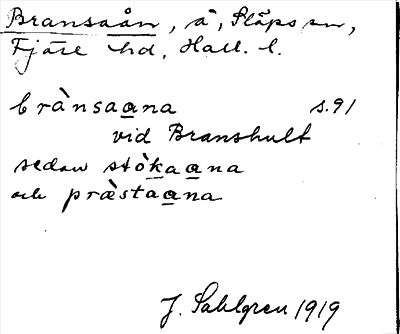 Bransaån, å, Släps sn,
Fjäre hd, Hall. l.
brànsaana s. 91
vid Branshult
sedan stòkaana
och præ̀staana
J. Sahlgren 1919